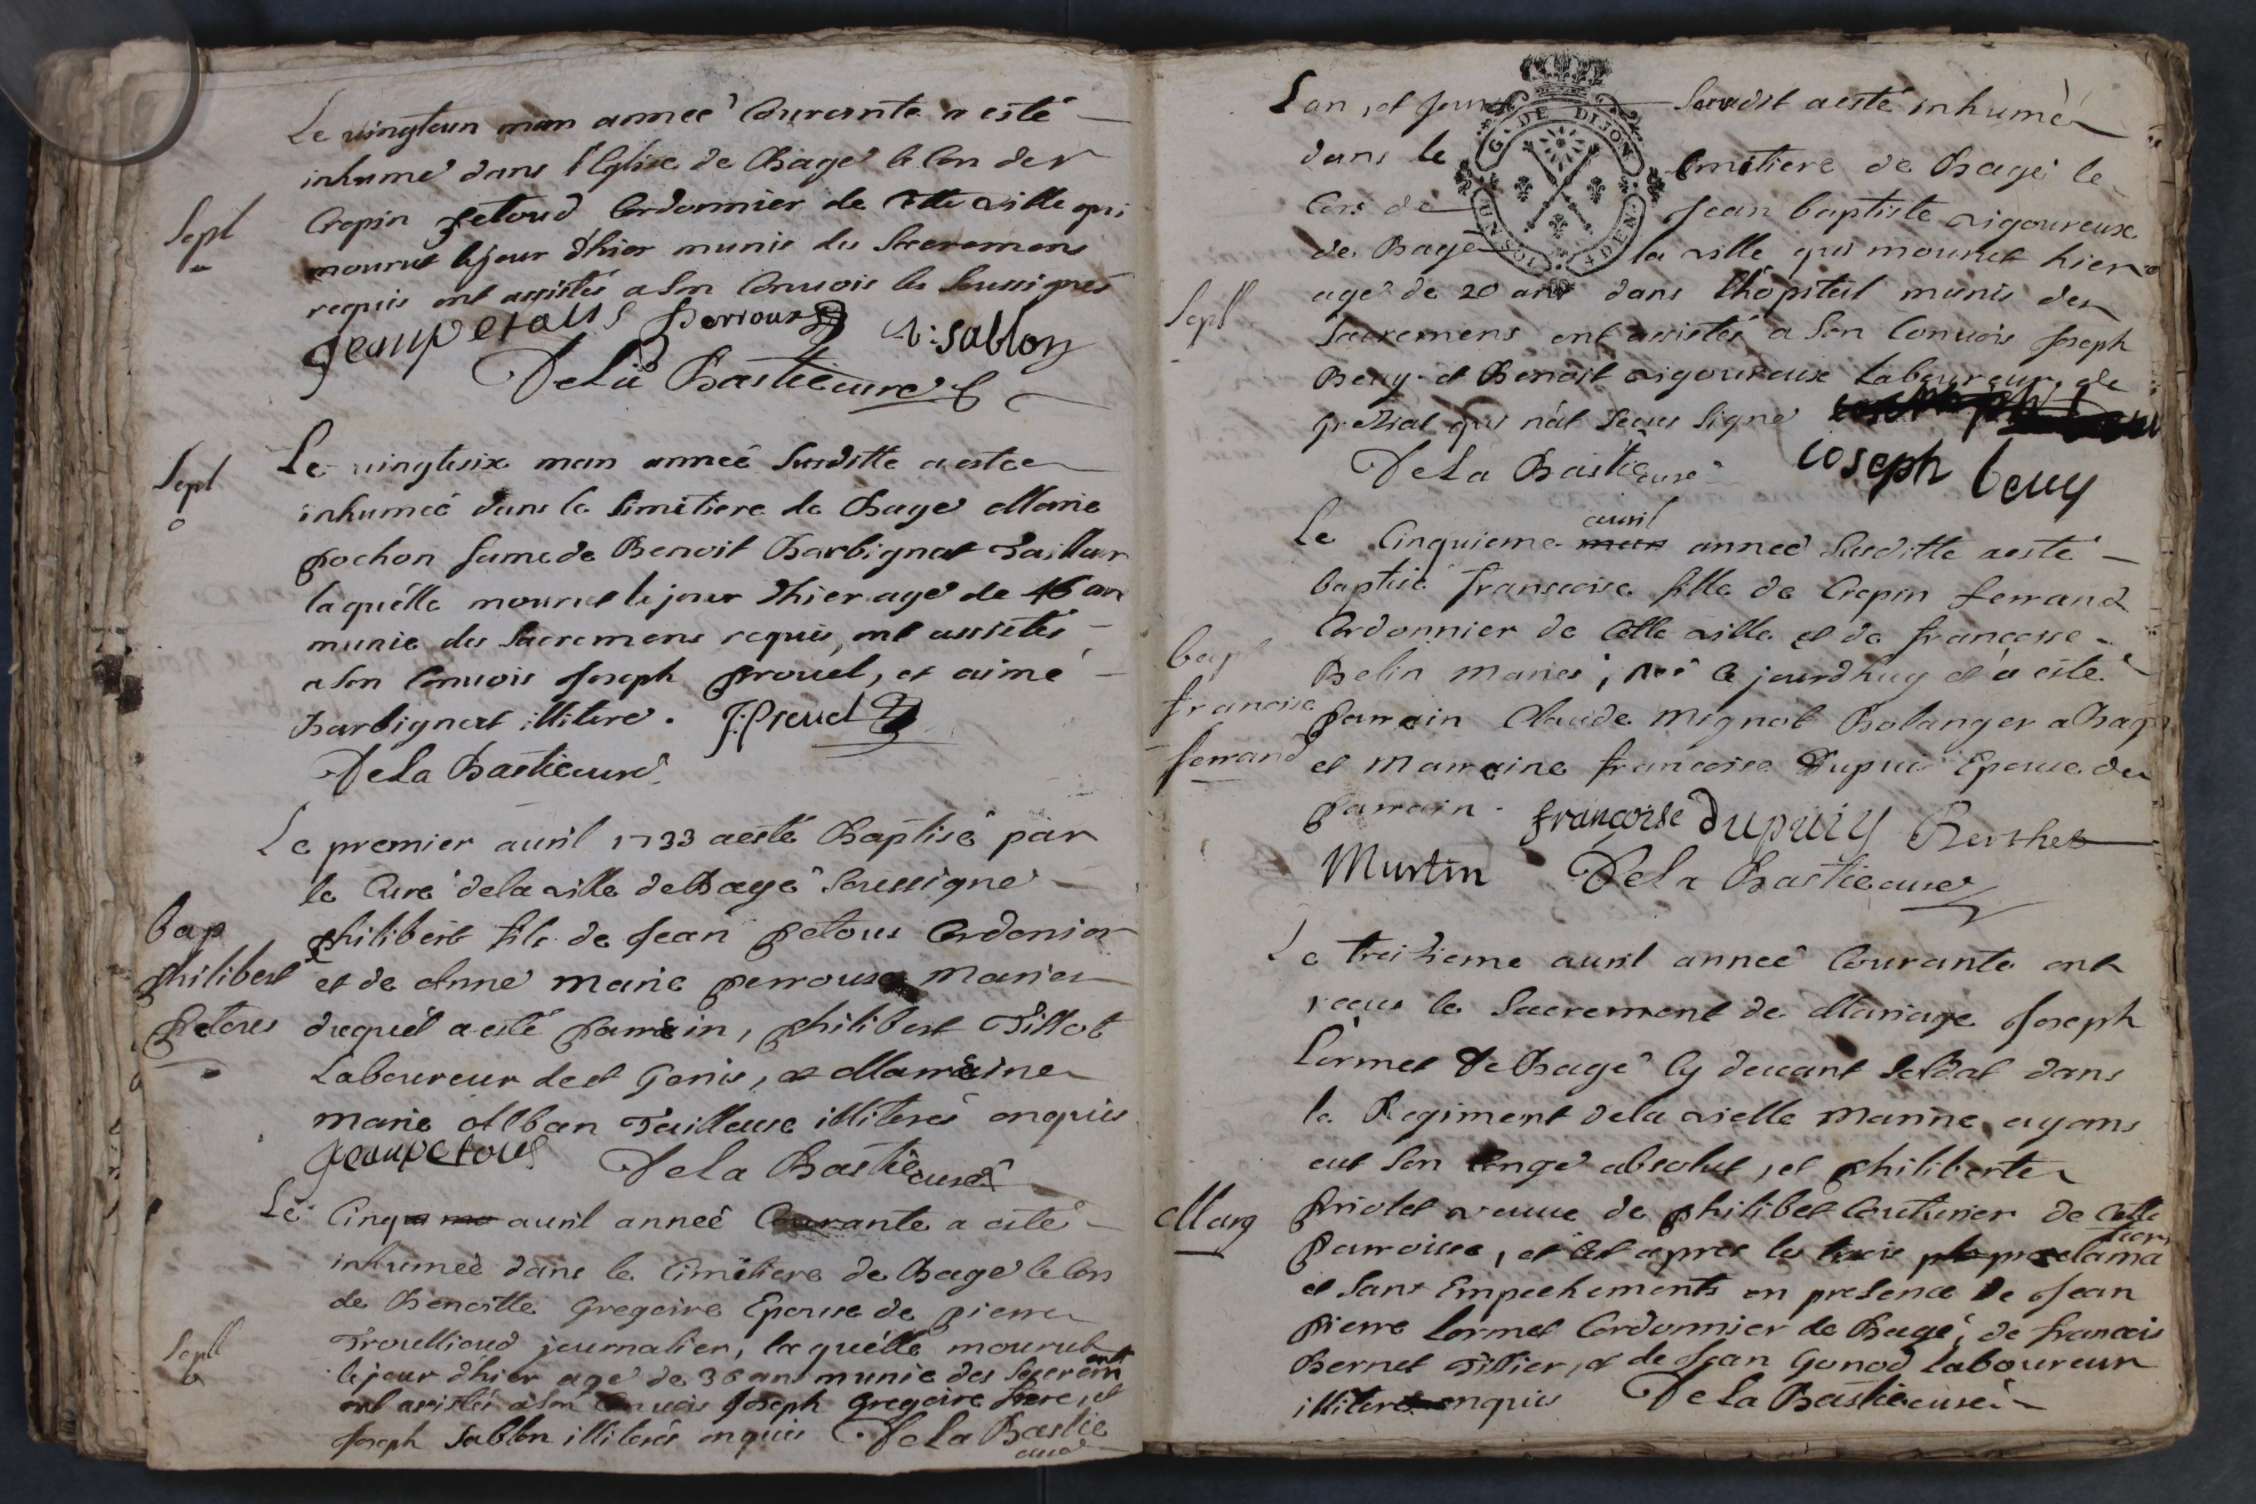 Le vingtun mars anneé Courante a esté
inhumé dans l'Eglise de Bagé le Cors de
Sepl
Crepin petoud Cordonnier de Cette ville qui
mourut le jour d'hier munie des Sacremens
requis ont assistés a son Convois les Soussignés
jeanpetous perrour B: sablon
De La Bastie curé
Sepl
Le vingtsix mars anneé Susditte a esteé
inhumeé dans le Simetiere de Bagé Marie
pochon fame de Benoit Barbignat Tailleur
laquélle mourut le jour d'hier agé de 46 ans
munie des Sacremens requis, ont assistés
a son Convois Joseph prouel, et aimé
Barbignat illiteré. J: Preuel
De La Bastie curé
Le premier auril 1733 a esté Baptisé par
le Curé de la ville de Bagé Soussigné
bap
philibert fils de Jean petous Cordonier
philibert
et de Anne Marie perrouse Mariés
petous
duquél a esté parrain, philibert Tillot
Laboureur de st Genis, et Marraine
Marie Alban Tailleuse illiterés enquis
jeanpetous De La Bastie curé
Le Cinq auril anneé Courante a esté
inhumeé dans le Cimétiere de Bagé le Cors
de Benoitte Gregoire Epouse de pierre
Sepl
Trouillioud journalier, la quélle mourut
le jour d'hier agé de 36 ans munie des Sacremens
ont assistés a son Convois Joseph Gregoire frere, et
Joseph Sablon illiterés enquis De La Bastie
curé
Lan, et jour Susdit a esté inhumé
G. DE DIJON
dans le Cimetiere de Bagé le
Cors de Jean baptiste vigoureux
de Bagé la ville qui mourut hier
Sepll
agé de 20 ans dans l'hôpital munis des
Sacremens ont assistés a Son Convois Joseph
Beuy et Benoit vigoureux Laboureur de
qui n'at Sceus Signé
De La Bastie curé ioseph beuy
auril
Le Cinquieme mars anneé Susditte a esté
baptisé francoise fille de Crepin ferrand
Cordonnier de Cette ville et de francoise
bapt
Belin Mariés, Neé le jourdhuy et a esté
francoise
parrain Claude Mignot Bolanger a Bagé
ferrand
et Marraine francoise Dupuis Epouse du
parrain. françoise dupuiy Berthet
Martin De La Bastie curé
Le treizieme auril anneé Courante ont
reçus le Sacrement de Mariage Joseph
Lormet de Bagé Cy deuant Soldat dans
le Regiment de la vielle Marine ayans
eut Son Congé absolut, et philiberte
Marg
priolet veuue de philibet Couturier de Cette
paroisse, et Cet apres les trois proclama
tions
et Sans Empechements en presence de Jean
pierre Lormet Cordonnier de Bagé, de francois
Bernet Tillier, et de Jean Gonod Laboureur
illiterés enquis De La Bastie curé